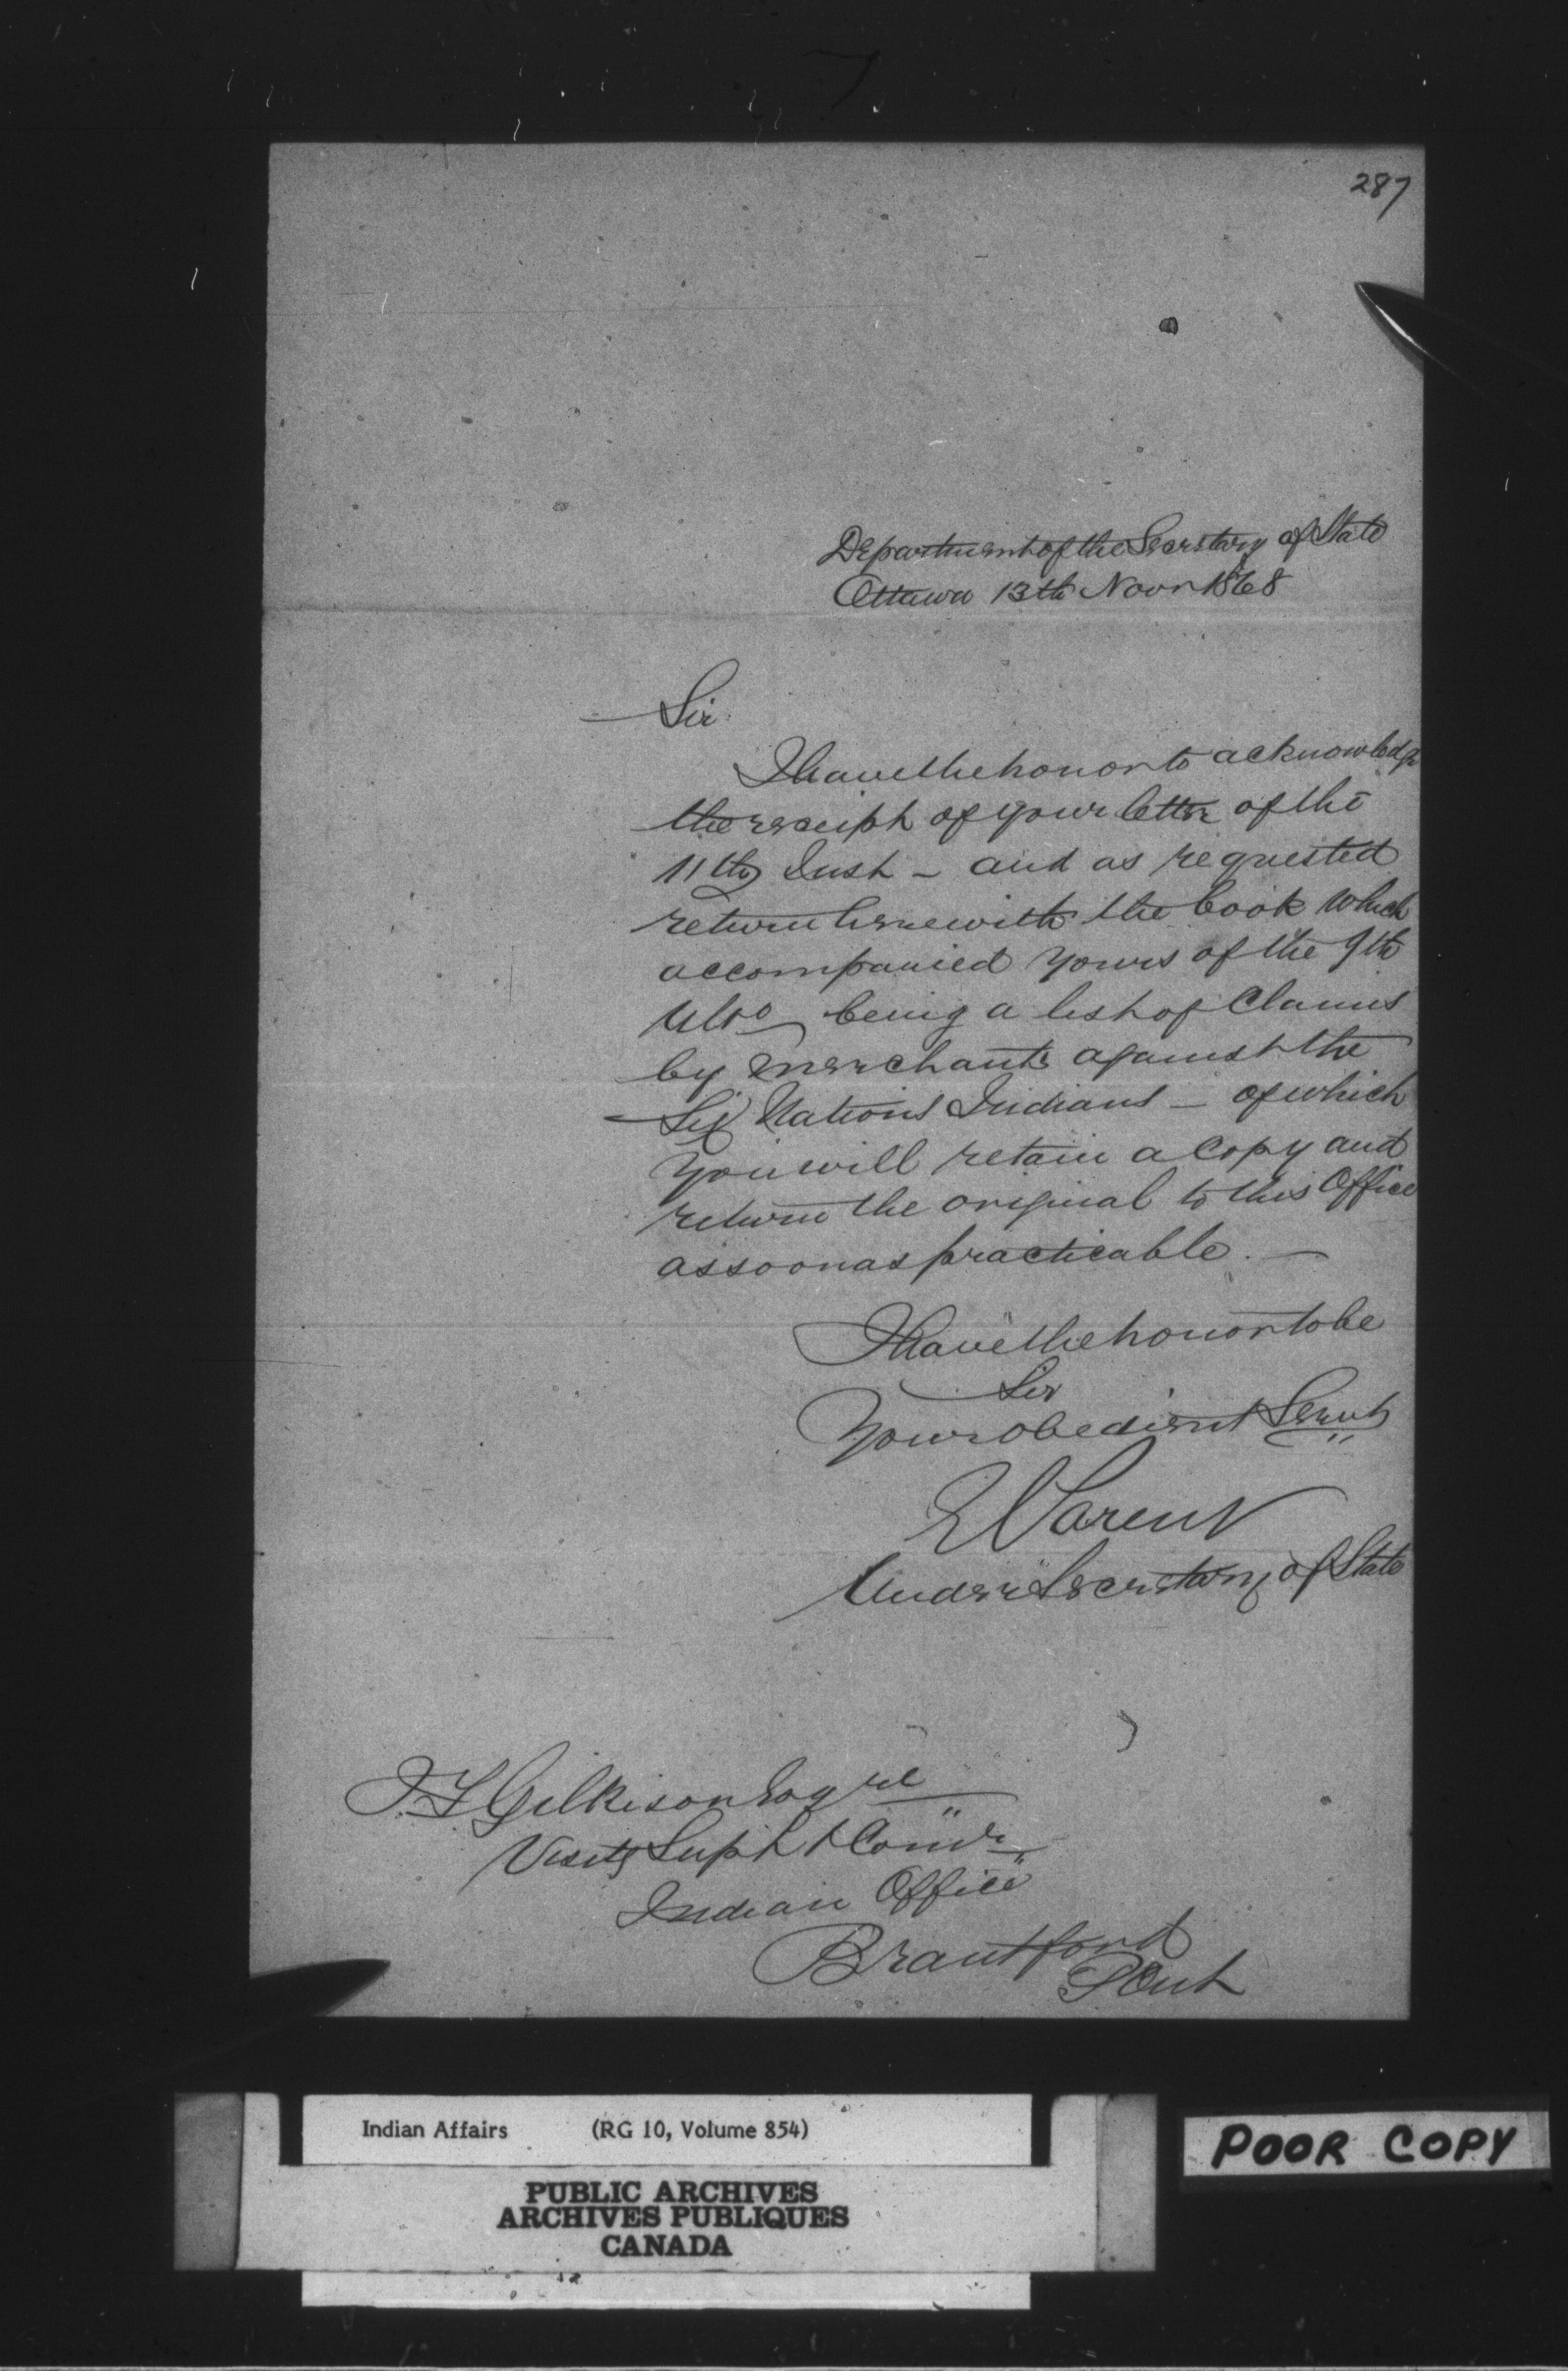 287
Department of the Secretary of State
Ottawa 13th Novr 1868
Sir
I have the honor to acknowledge
the receipt of your letter of the
11th Inst - and as requested
return herewith the book which
accompanied yours of the 9th
Ulto being a list of Claims
by merchants against the
Six Nations Indians - of which
you will retain a Copy and
return the original to this Office
as soon as practicable. -
I have the honor to be
Sir
Your obedient Servt
E Parent
Under Secretary of State
J. T. Gilkison Esqre
Visitg Supt & Comr
Indian Office
Brantford
P Ont
Indian Affairs (RG 10, Volume 854)
PUBLIC ARCHIVES
ARCHIVES PUBLIQUES
CANADA
POOR COPY